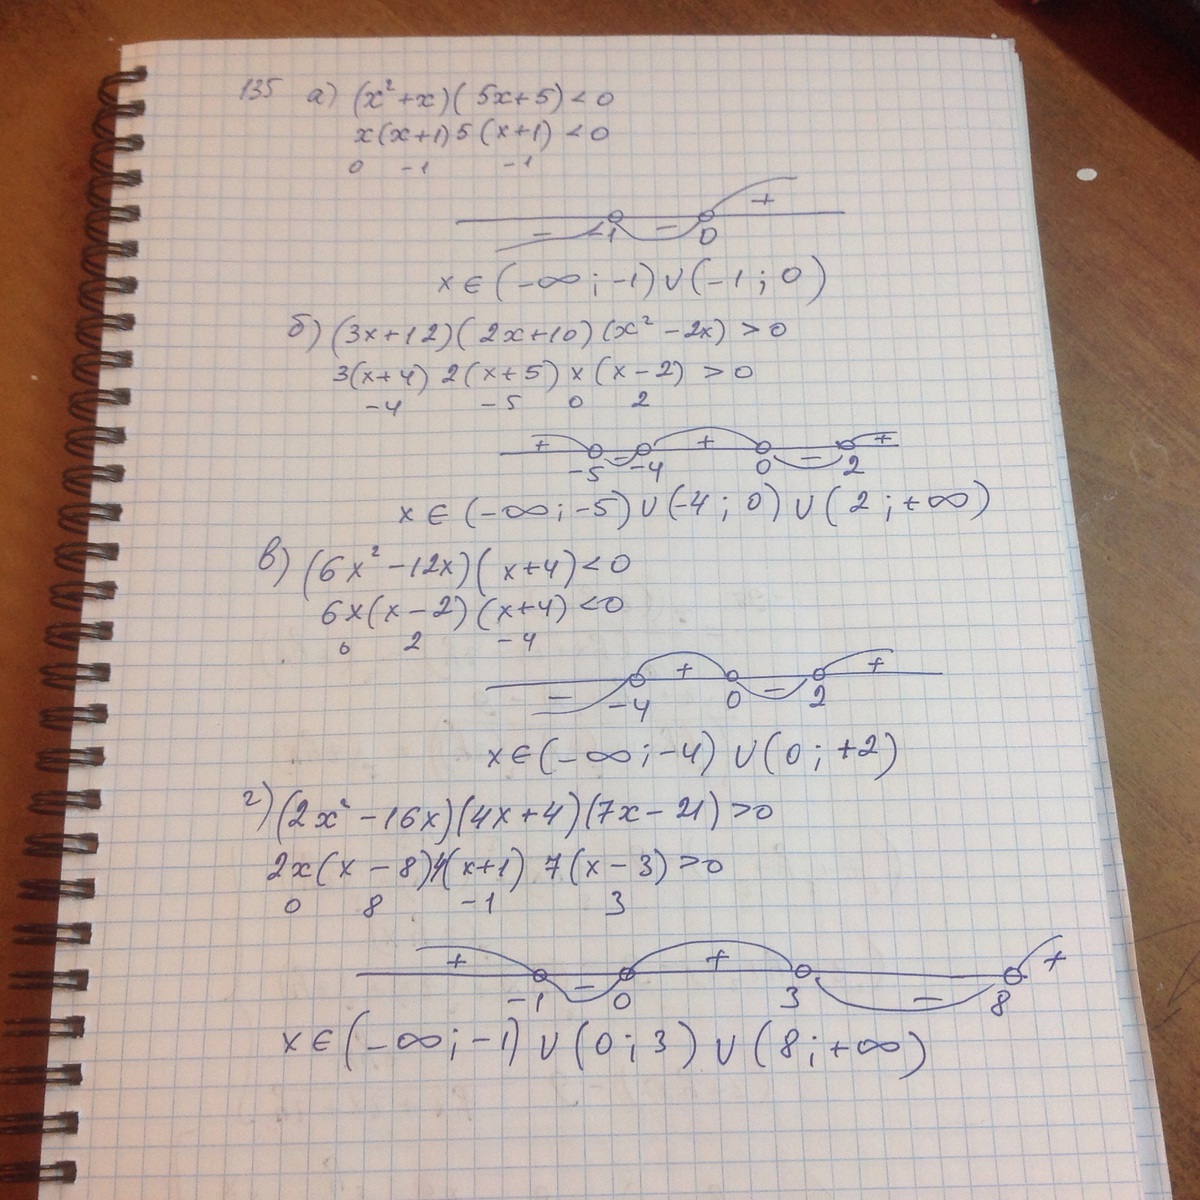 135 а) (x² + x)(5x+5) < 0
x(x+1) 5 (x+1) < 0
0 -1 -1
- - +
-1 0
x ∈ (-∞; -1) ∪ (-1; 0)
б) (3x+12)(2x+10)(x² - 2x) > 0
3(x+4) 2(x+5) x (x-2) > 0
-4 -5 0 2
+ - + - +
-5 -4 0 2
x ∈ (-∞; -5) ∪ (-4; 0) ∪ (2; +∞)
в) (6x² - 12x)(x+4) < 0
6x(x-2)(x+4) < 0
0 2 -4
- + - +
-4 0 2
x ∈ (-∞; -4) ∪ (0; +2)
г) (2x² - 16x)(4x+4)(7x-21) > 0
2x(x-8) 4(x+1) 7(x-3) > 0
0 8 -1 3
+ - + - +
-1 0 3 8
x ∈ (-∞; -1) ∪ (0; 3) ∪ (8; +∞)